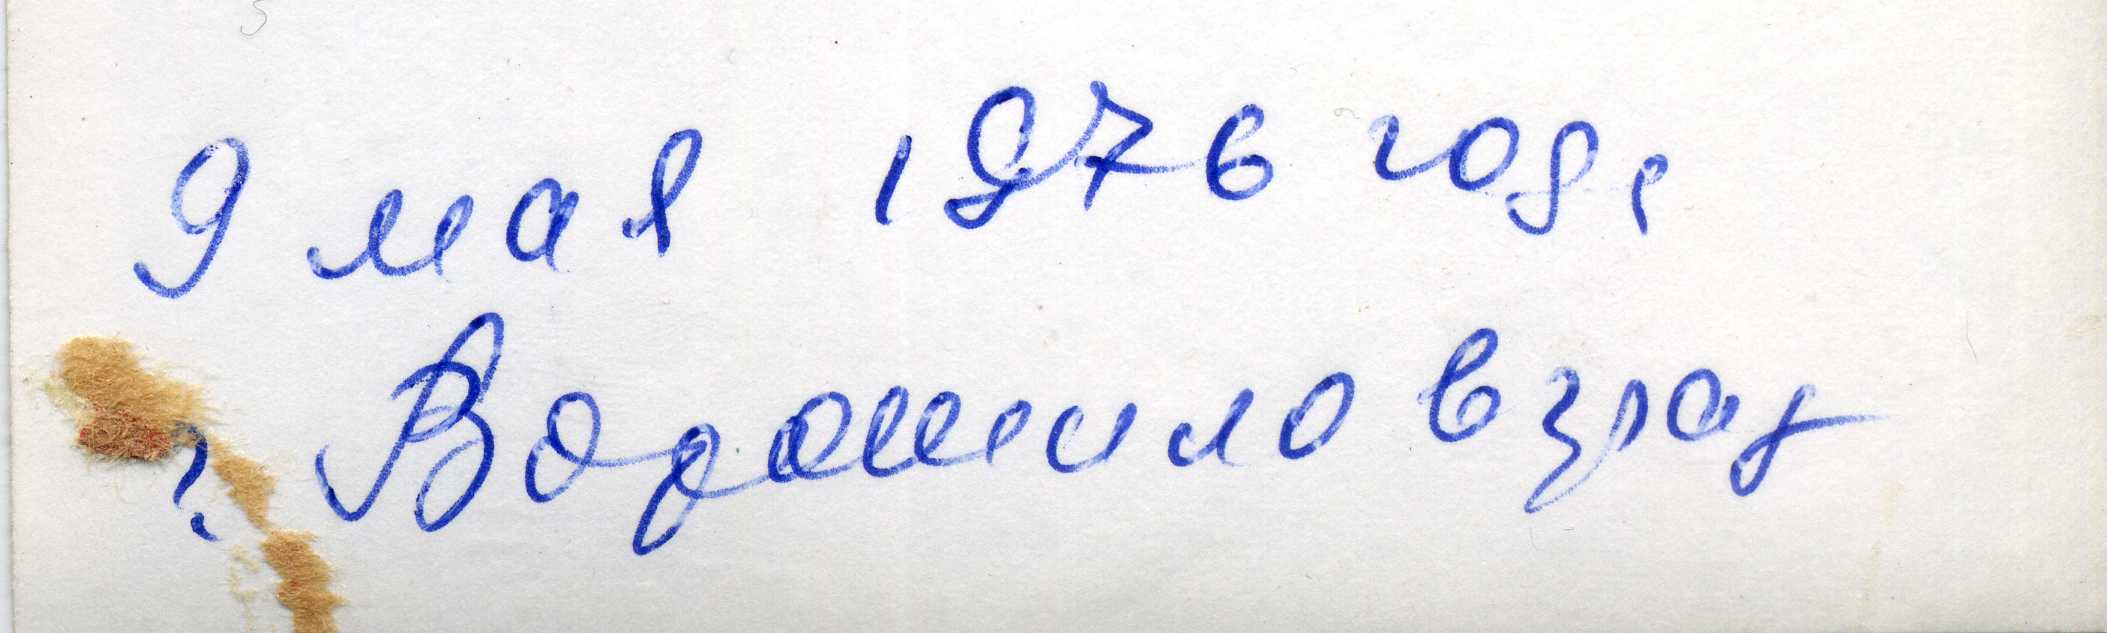 9 мая 1976 год,
г. Ворошиловград